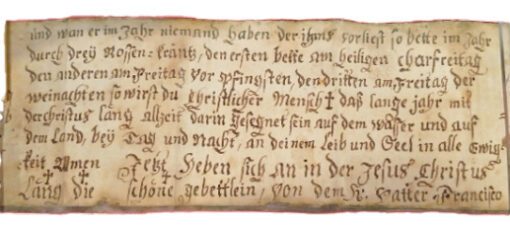 und wan er im Jahr niemand haben der ihms vorliest so bette im Jahr
durch drey Rossen=kräntz, den ersten bette am heiligen Charfreitag
den anderen am Freitag vor Pfingsten den dritten am Freitag der
weinachten so wirst du Christlicher Mensch ✝ daß lange jahr mit
der christus lang allzeit darin gesegnet sein auf dem wasser und auf
dem Land, bey Tag und Nacht, an deinem Leib und Seel in alle Ewig=
keit Amen Jetzt heben sich an in der Jesus Christus
Lang die schöne gebettlein, von dem H. Vatter Francisco